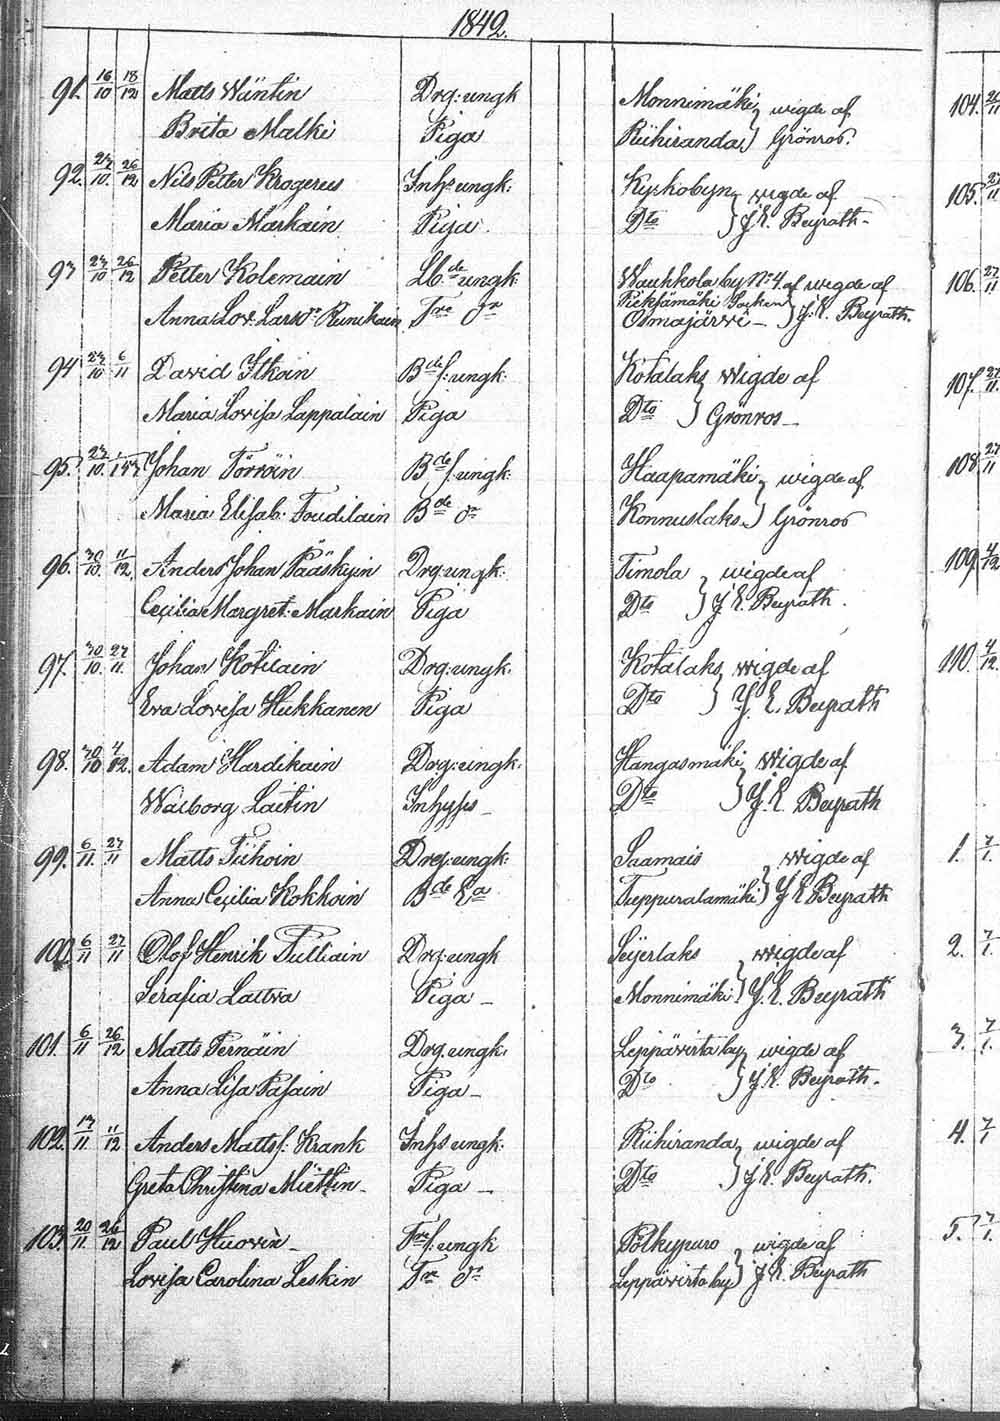 1842.
91. 16/10 18/12 Matts Wäntin Drg: ungk Monnimäki } wigde af
Brita Malki Piga Riihiranda } Grönros.
92. 23/10. 26/12 Nils Petter Krogerus Inhs ungk: Kyrkobyn } wigde af
Maria Markain Piga Dto } J. E. Beyrath.
93 23/10 26/12 Petter Kolemain Lbde ungk: Wauhkola by No 4. af wigde af
Anna Lov: Larsdr Runikain Tre dr Pieksämäki Socken } J. E. Beyrath.
Osmajärvi
94 23/10 6/11 David Itkoin Bde s: ungk: Kotalaks } wigde af
Maria Lovisa Lappalain Piga Dto } Grönros
95. 23/10. Johan Törröin Bde s: ungk: Haapamäki } wigde af
Maria Elisab. Toudilain Bde dr Konnuslaks } Grönros
96. 30/10. 11/12. Anders Johan Pääskyin Drg: ungk: Timola } wigde af
Cecilia Margret: Markain Piga Dto } J. E. Beyrath.
97. 30/10. 27/11. Johan Kötilain Drg: ungk: Kotalaks } wigde af
Eva Lovisa Hukkanen Piga Dto } J. E. Beyrath
98. 30/10 4/12. Adam Hardikain Drg: ungk: Hangasmäki } wigde af
Walborg Laitin Inhyss Dto } J. E. Beyrath
99. 6/11. 27/11 Matts Tiihoin Dreg: ungk: Saamais } wigde af
Anna Cecilia Kokkoin Bde Ea Tuppuralamäki } J E Beyrath
100 6/11 27/11 Olof Henrik Tultiain Drg: ungk Seyerlaks } wigde af
Serafia Laitva Piga Monnimäki } J. E. Beyrath
101. 6/11 26/12 Matts Ternäin Drg. ungk. Leppävirta by } wigde af
Anna Lisa Pasain Piga Dto } J. E. Beyrath.
102. 13/11. 11/12 Anders Matts s: Krank Inhs ungk: Riihiranda } wigde af
Greta Christina Miettin Piga Dto } J. E. Beyrath.
103. 20/11. 26/12 Paul Huovin Tre s: ungk Pölkypuro } wigde af
Lovisa Carolina Leskin Tre dr Leppävirta by } J. E. Beyrath
104.
105. 27/11
106. 27/11
107. 27/11.
108 27/11
109. 4/12
110. 4/12.
1. 7/1.
2. 7/1.
3. 7/1.
4. 7/1
5. 7/1.